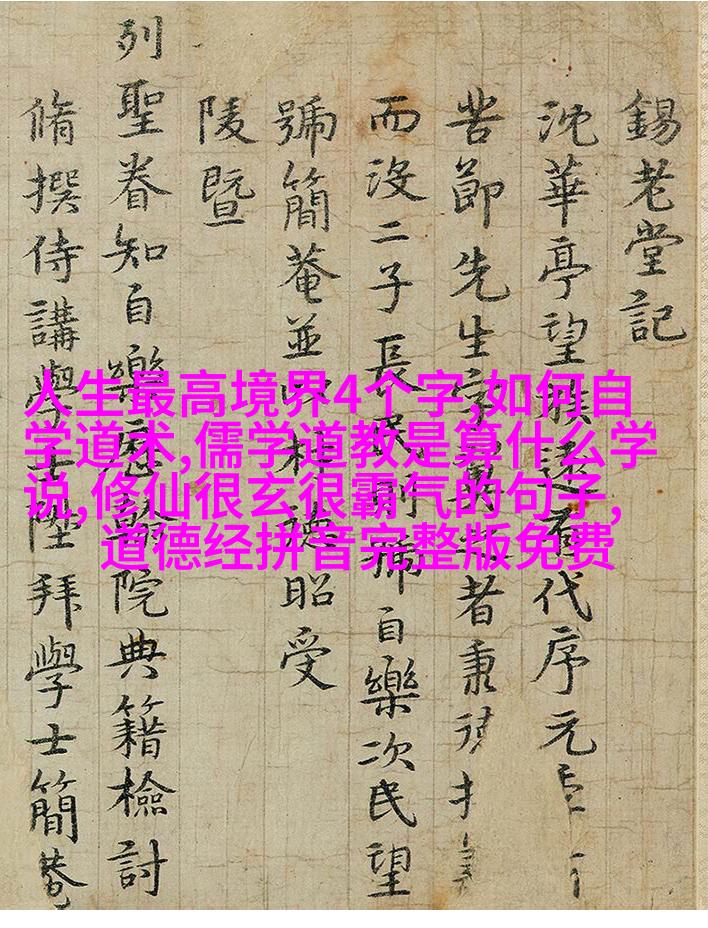 錫老堂記
沈華亭望族遠有代序元
苦節先生字易者秉
而没二子長民則號自樂次民望
號簡菴並以相德昭受
陵暨
列聖眷知自樂歷院典籍檢討
脩撰侍講學士陞拜學士簡菴
人生最高境界4个字,如何自
学道术,儒学道教是算什么学
说,修仙很玄很霸气的句子,
道德经拼音完整版免费